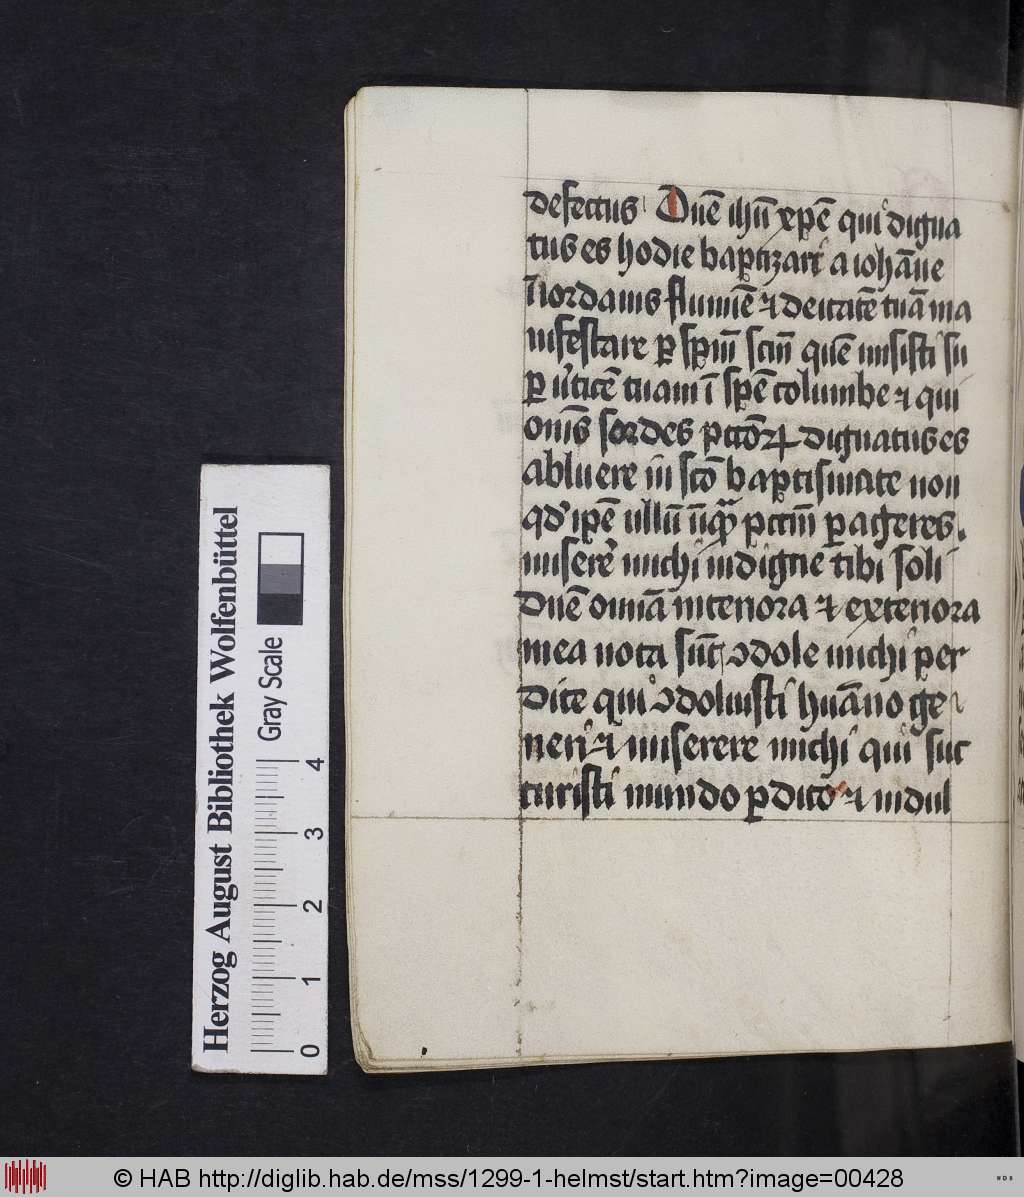 defectus Dn̄e ihū xp̄e qui digna
tus es hodie bapt̄izari a ioh̄āne
ī iordanis flumīe ⁊ deitatē tuā ma
nifestare ꝑ sp̄m̄ sc̄m̄ quē misisti su
ꝑ v̓ticē tuam ī sp̄ē columbe ⁊ qui
om̄s sordes pctōꝝ dignatus es
abluere in sc̄o baptismate non
qd̓ ip̄e ullū ūqᷓꝫ pctm̄ ꝑageres.
miserē michi indigne tibi soli
dn̄e om̄ia interiora ⁊ exteriora
mea nota sūt ꝯdole michi per
dite qui ꝯdoluisti huāno ge
neri ⁊ miserere michi qui suc
curristi mundo ꝑdito ⁊ indul
Herzog August Bibliothek Wolfenbüttel
Gray Scale
0 1 2 3 4
© HAB http://diglib.hab.de/mss/1299-1-helmst/start.htm?image=00428